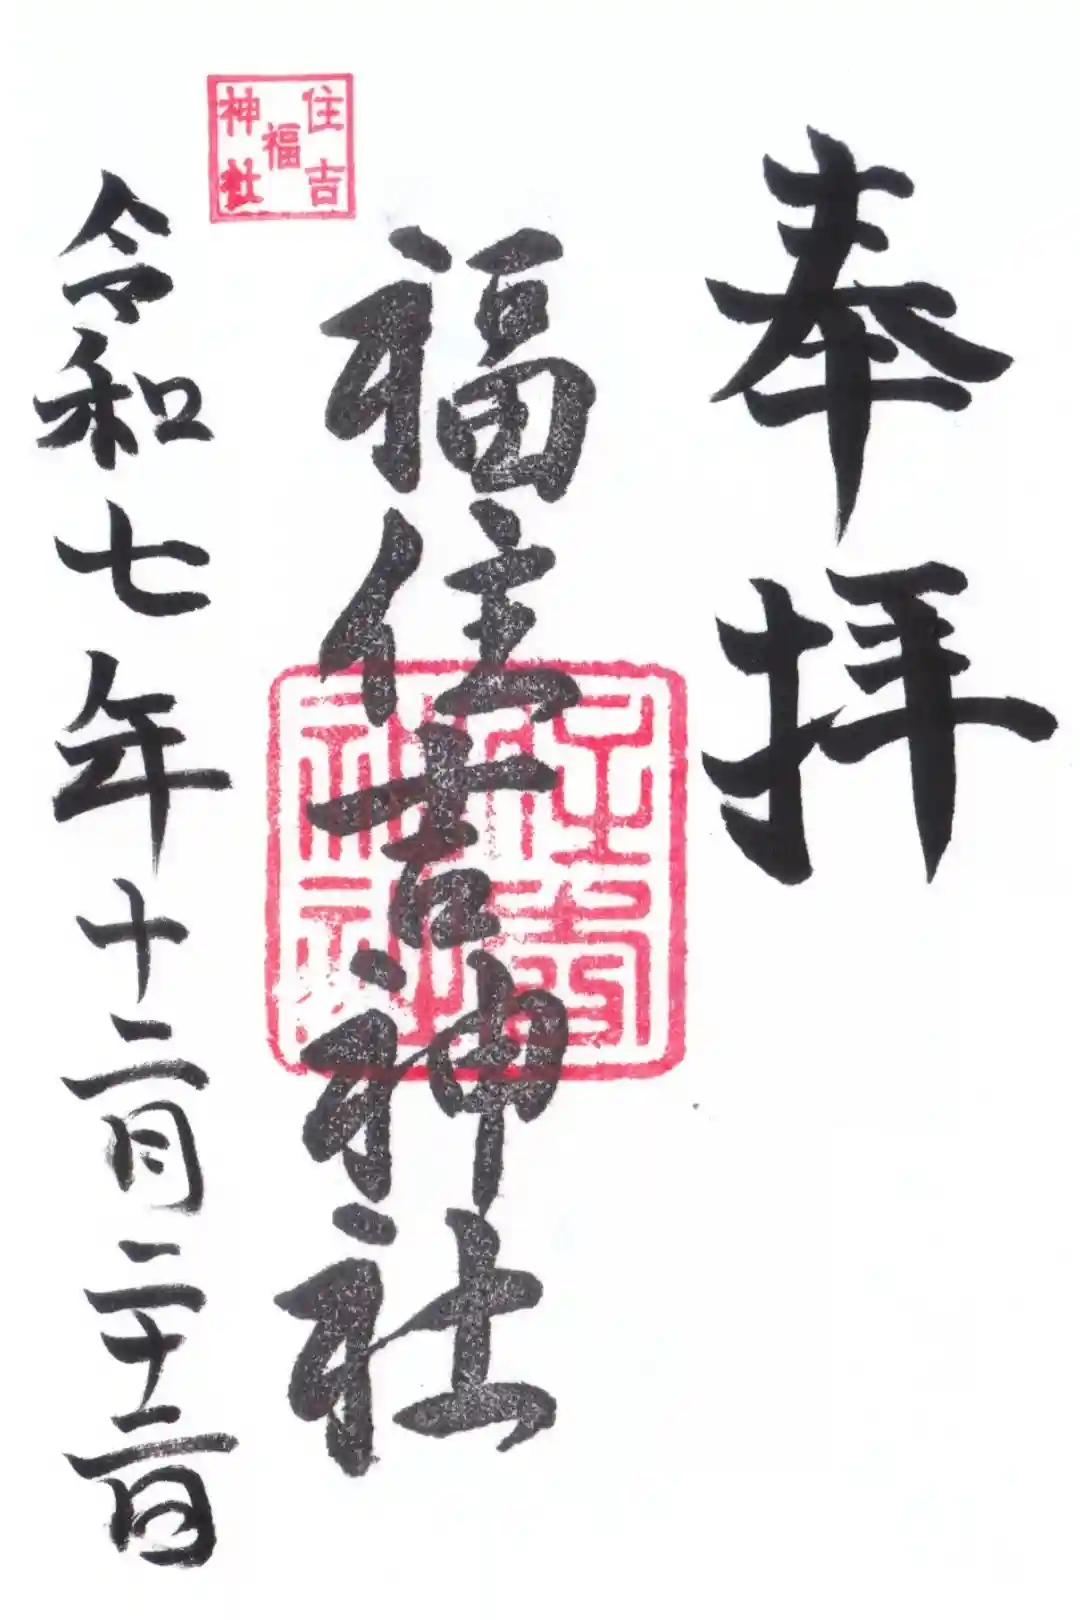 奉拝
福住吉神社
住吉
福
神社
住吉
神社
令和七年十二月二十二日